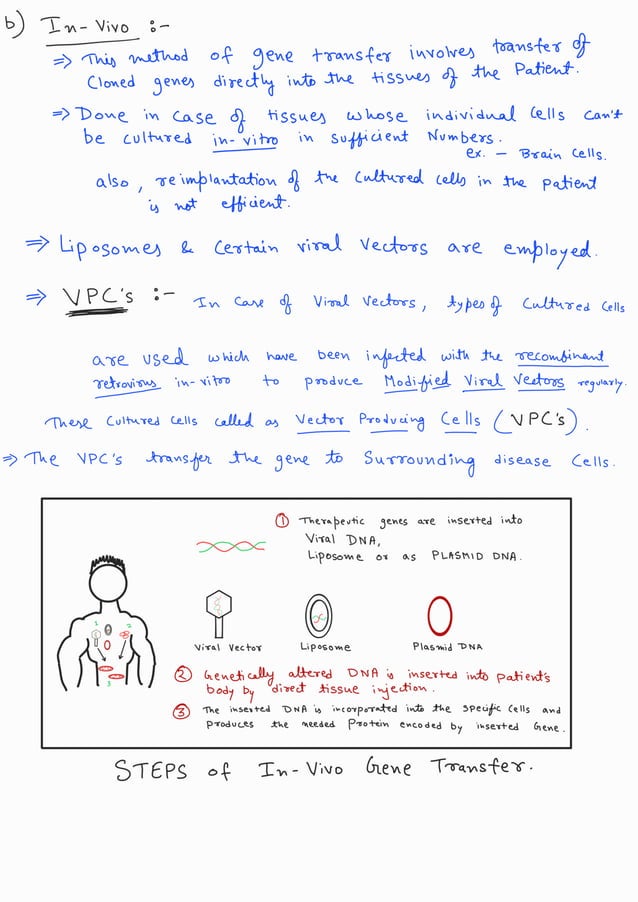 b) In-Vivo :-
⇒ This method of gene transfer involves transfer of
cloned genes directly into the tissues of the Patient.
⇒ Done in case of tissues whose individual cells can't
be cultured in-vitro in sufficient Numbers.
ex. – Brain cells.
also, reimplantation of the cultured cells in the patient
is not efficient.
⇒ Liposomes & certain viral vectors are employed.
⇒ VPC's :- In case of Viral Vectors, types of cultured cells
are used which have been infected with the recombinant
retrovirus in-vitro to produce Modified Viral Vectors regularly.
These cultured cells called as Vector Producing Cells (VPC's).
⇒ The VPC's transfer the gene to Surrounding disease cells.
① Therapeutic genes are inserted into
Viral DNA,
Liposome or as PLASMID DNA.
1 2
3
Viral Vector Liposome Plasmid DNA
② Genetically altered DNA is inserted into patient's
body by direct tissue injection.
③ The inserted DNA is incorporated into the specific cells and
produces the needed Protein encoded by inserted Gene.
STEPS of In-Vivo Gene Transfer.